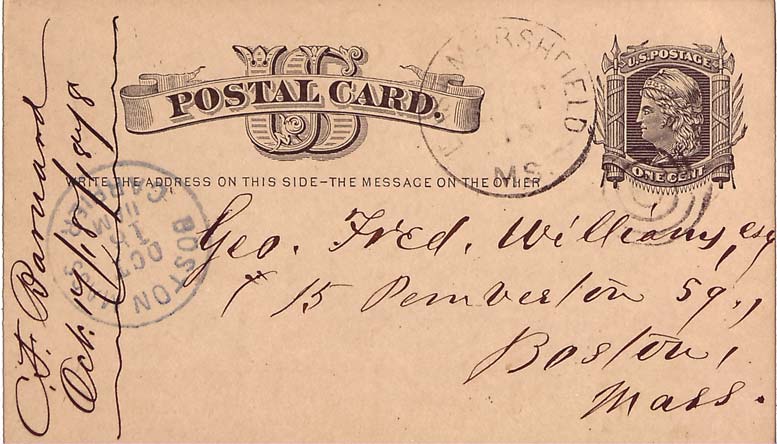 US
POSTAL CARD.
U.S. POSTAGE
ONE CENT
MARSHFIELD
MS.
WRITE THE ADDRESS ON THIS SIDE–THE MESSAGE ON THE OTHER
BOSTON MASS
OCT
Geo. Fred. Williams, esq
15 Pemberton Sq.,
Boston,
Mass.
C. F. Barnard
Oct. 1878